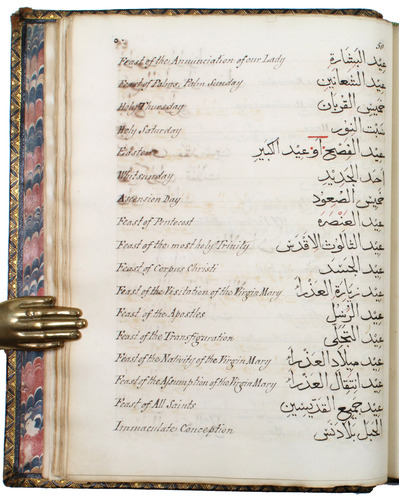 50
Feast of the Annunciation of our Lady عيد البشارة
Feast of Palms, Palm Sunday عيد الشعانين
Holy Thursday خميس القربان
Holy Saturday سبت النور
Easter عيد الفصح او عيد الكبير
Whitsunday احد الجديد
Ascension Day خميس الصعود
Feast of Pentecost عيد العنصرة
Feast of the most holy Trinity عيد الثالوث الاقدس
Feast of Corpus Christi عيد الجسد
Feast of the Visitation of the Virgin Mary عيد زيارة العذراء
Feast of the Apostles عيد الرسل
Feast of the Transfiguration عيد التجلي
Feast of the Nativity of the Virgin Mary عيد ميلاد العذراء
Feast of the Assumption of the Virgin Mary عيد انتقال العذراء
Feast of All Saints عيد جميع القديسين
Immaculate Conception الحبل بلا دنس